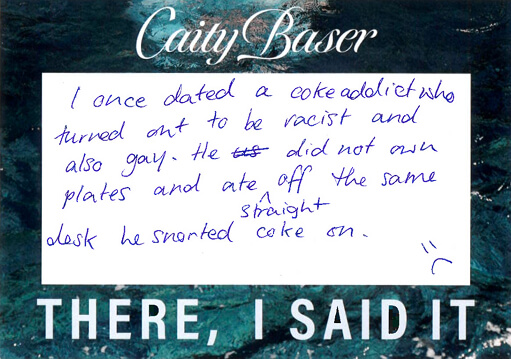 Caity Baser
I once dated a coke addict who
turned out to be racist and
also gay. He us did not own
plates and ate straight off the same
desk he snorted coke on.
:(
THERE, I SAID IT